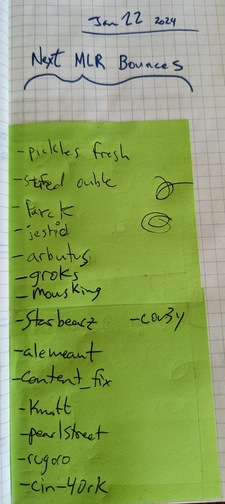 Jan 22 2024
Next MLR Bounces
-pickles fresh
-stfed ouble
-farck
-jestid
-arbutus
-groks
-mousking
-Starbearz -cov3y
-alemeant
-content_fix
-Kmatt
-pearlstreet
-rugoro
-cin-York